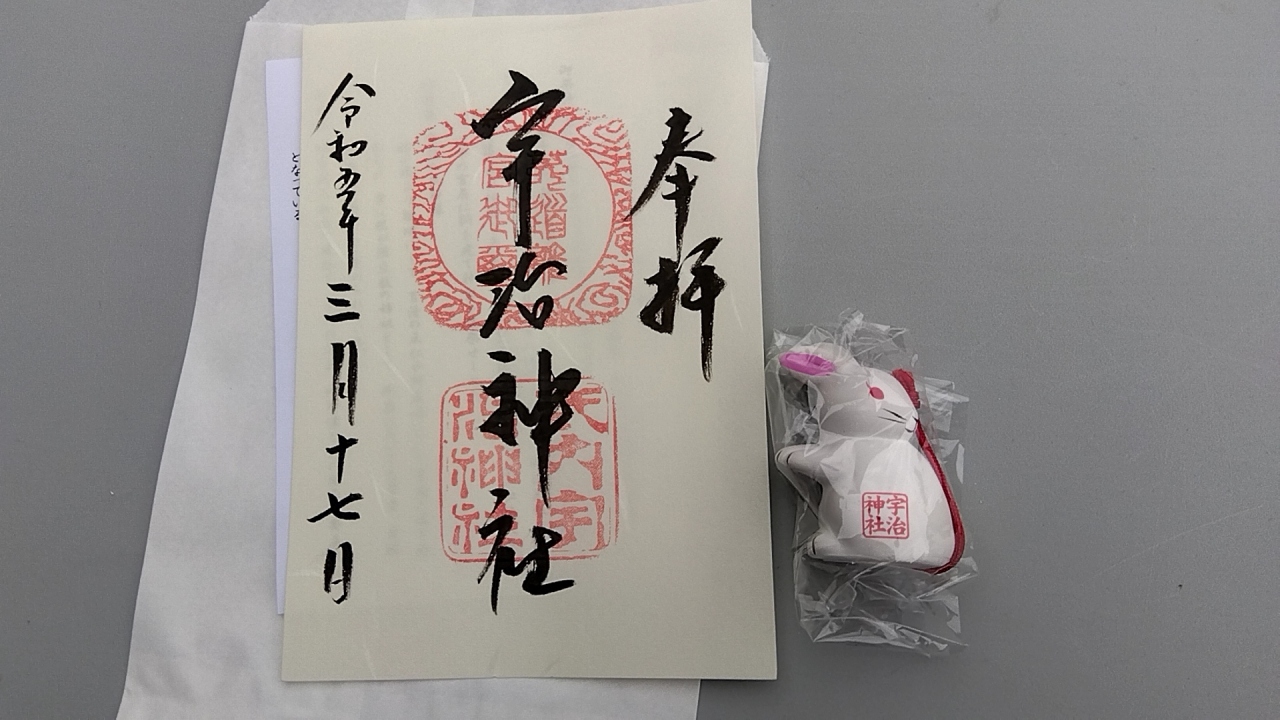 奉拝
宇治神社
令和五年三月十七日
宇治
神社